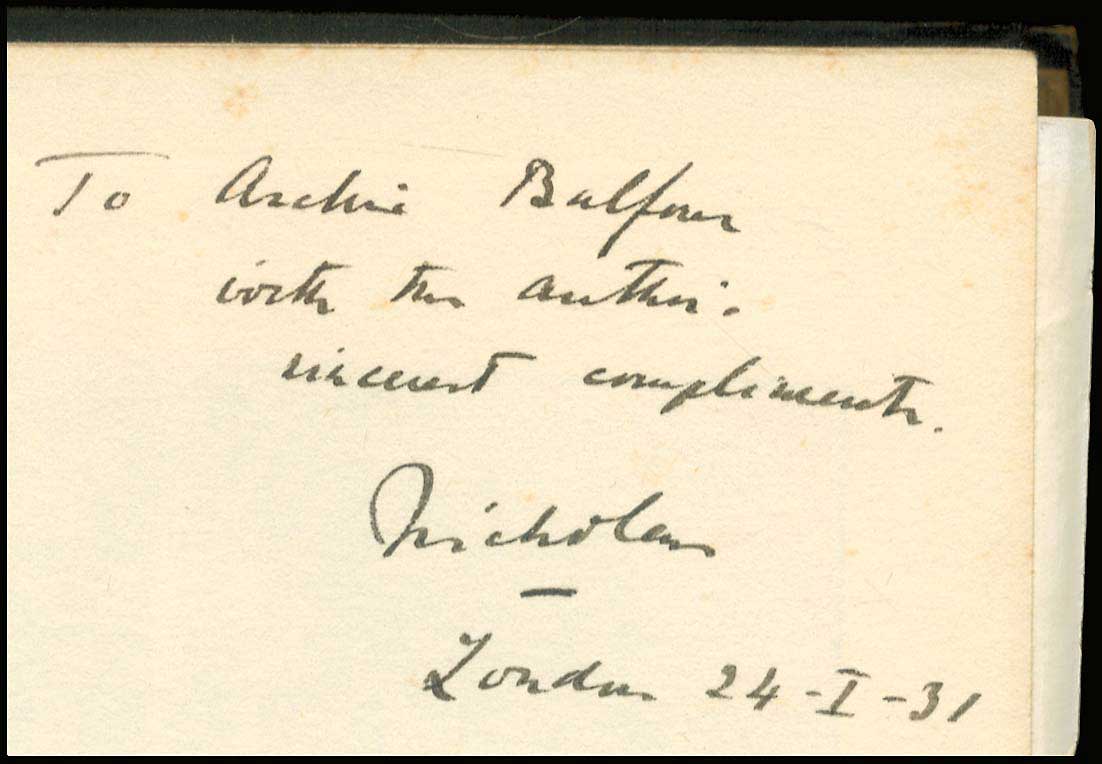 To Archie Balfour
with the author's
sincerest compliments.
Nicholas
London 24-I-31